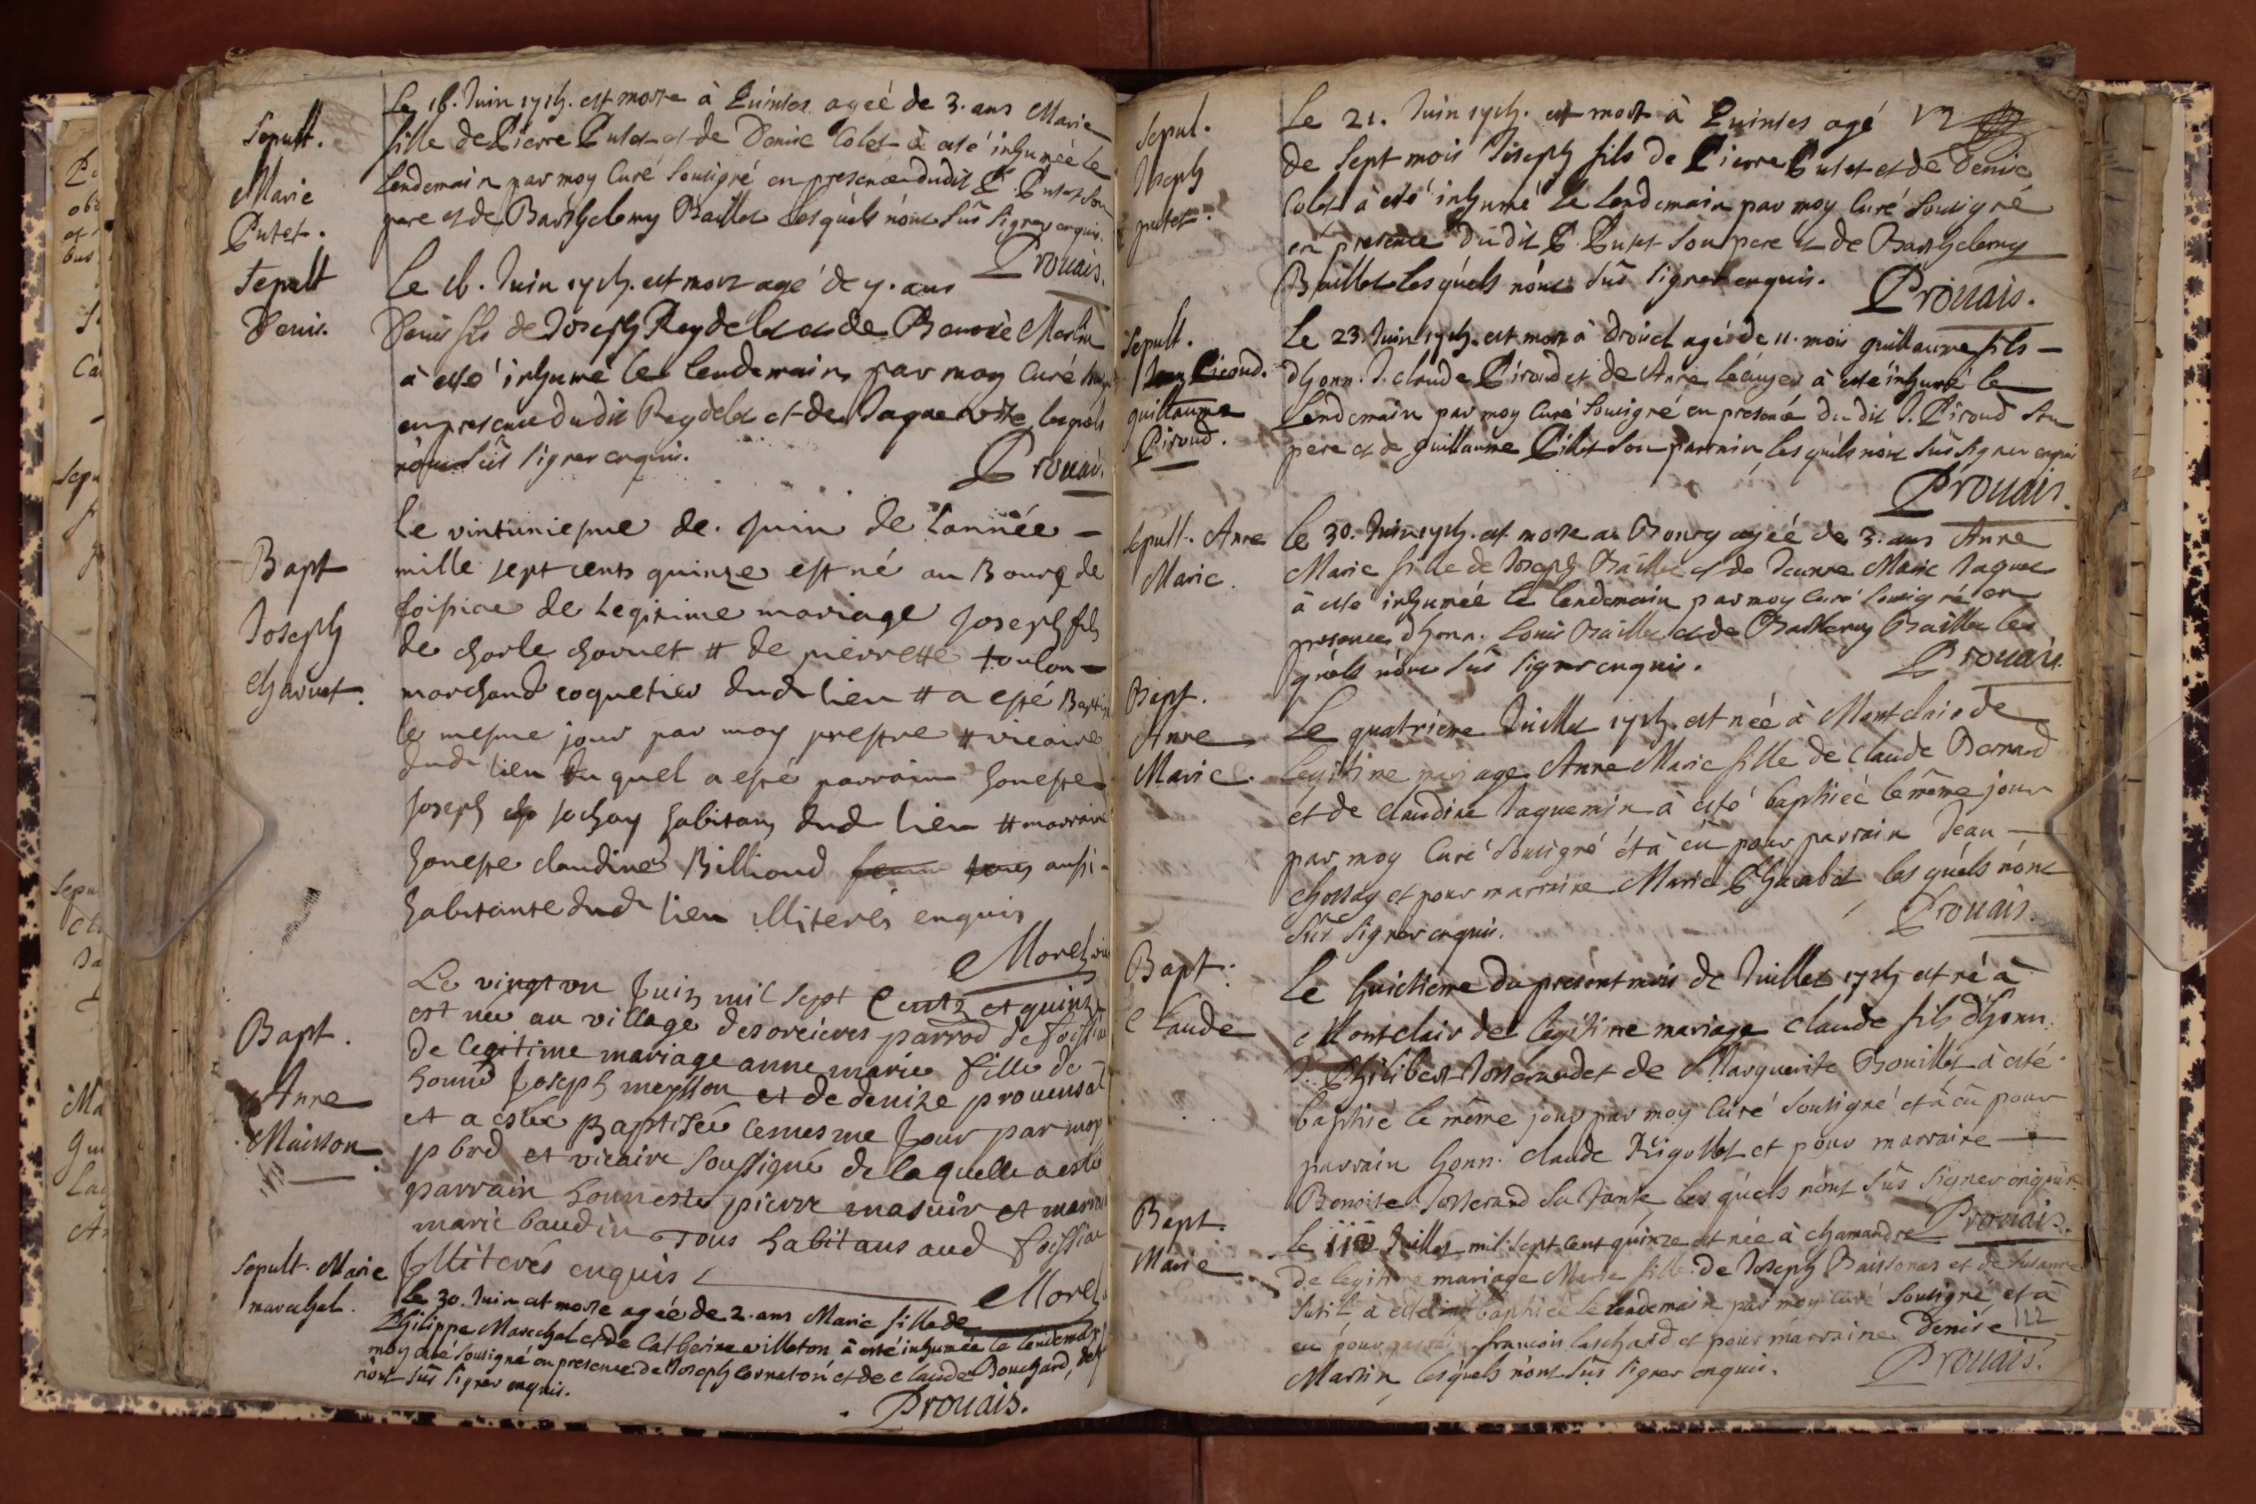 Sepult.
Marie
Putet.
Le 16. Juin 1715. est morte à Quintes ageé de 3. ans Marie
fille de Pierre Putet et de Denise Colet à esté inhumeé le
Lendemain par moy Curé Souligré en presence dudit P. Putet son
pere et de Barthelemy Baillet lesquels n'ont sus signer enquis.
Prouais.
Sepult
Denis.
Le 16. Juin 1715. est mort agé de 7. ans
Denis fils de Joseph Reydelet et de Benoite Merlin
à esté inhumé le lendemain par moy Curé
en presence dudit Reydelet et de Jaque vite lesquels
n'ont sus signer enquis.
Prouais.
Bapt
Joseph
Charvet.
Le vintuniesme de. Juin de Lannée
mille sept cents quinze est né au Bourg de
foissiae de Legitime mariage Joseph fils
de charle charvet # de pierrette toulon
marchand coquetier dud lieu # a esté Baptisé
le mesme jour par moy prestre # vicaire
dud lieu duquel a esté parrain honeste
Joseph Jochay habitans dud lieu # marraine
honeste claudine Billioud aussi
habitante dud lieu illiterés enquis
Morel vic
Bapt.
Anne
Maisson.
Le vingt vn Juin mil sept Centz et quinze
est née au village desorcieres parrod de foissia
De legitime mariage anne marie fille de
honnd Joseph mayssou et de denize prouensal
et a estée Baptisée cemesme Jour par moy
pbrd et vicaire soussigné de laquelle a esté
parrain honneste pierre masuir et marrai
marie baudin Tous habitans aud foissia
Illiterés enquis
Morel
Sepult. Marie
marechal.
Le 30. Juin est morte ageé de 2. ans Marie fille de
Philippe Marechal et de Catherine villeton à esté inhumeé le lendemain
moy Curé souligné en presence de Joseph Corneton et de Claude Bouchard,
n'ont sus signer enquis.
Prouais.
Sepul.
Joseph
putet.
Le 21. Juin 1715. est mort à Quintes agé
de Sept mois Joseph fils de Pierre Putet et de Denise
Colet à esté inhumé le Lendemain par moy Curé Souligné
en presence dudit P. Putet Son pere et de Barthelemy
Baillet Lesquels n'ont sus signer enquis.
Prouais.
Sepult.
guillaume
Piroud.
Le 23. Juin 1715. est mort à Drouel agé de 11. mois guillaume fils
d'honn. J. claude Piroud et de Anne à esté inhumé le
Lendemain par moy Curé Souligné en presence du dit J. Piroud Son
pere et de guillaume Pillet Son parrain, lesquels n'ont sus signer enquis
Prouais.
Sepult. Anne
Marie.
Le 30. Juin 1715. est morte au Bourg ageé de 3. ans Anne
Marie fille de Joseph Baillet et de Jeanne Marie Jaquet
à esté inhumeé le lendemain par moy Curé Souligné en
presence d'honn. Louis Baillet et de Barthemy Baillet les
quels n'ont sus signer enquis.
Prouais.
Bapt.
Anne
Marie.
Le quatrieme Juillet 1715. est née à Montclair de
legitime mariage Anne Marie fille de Claude Bernard
et de Claudine Jaquemin à esté baptiseé le même jour
par moy Curé Souligné et à eû pour parrain Jean
Chossay et pour marraine Marie Gharabot lesquels n'ont
sus signer enquis.
Prouais.
Bapt.
Claude
Le huictieme du present mois de Juillet 1715 est né à
Montclair de legitime mariage Claude fils d'honn.
J. Philibert Josserand et de Marguerite Bouillet à esté
baptisé le même jour par moy Curé Souligné et à eû pour
parrain honn. Claude Rigollet et pour marraine
Benoite Josserand Sa Tante, lesquels n'ont sus signer enquis.
Prouais.
Bapt.
Marie
Le 11e Juillet mil sept cent quinze est née à chamandre
De legitime mariage Marie fille de Joseph Baissonas et de Susanne
à esté baptiseé le lendemain par moy Curé Souligné, et à
eu pour parrain francois Laschard et pour marraine Denise
Martin, lesquels n'ont sus signer enquis.
Prouais.
112